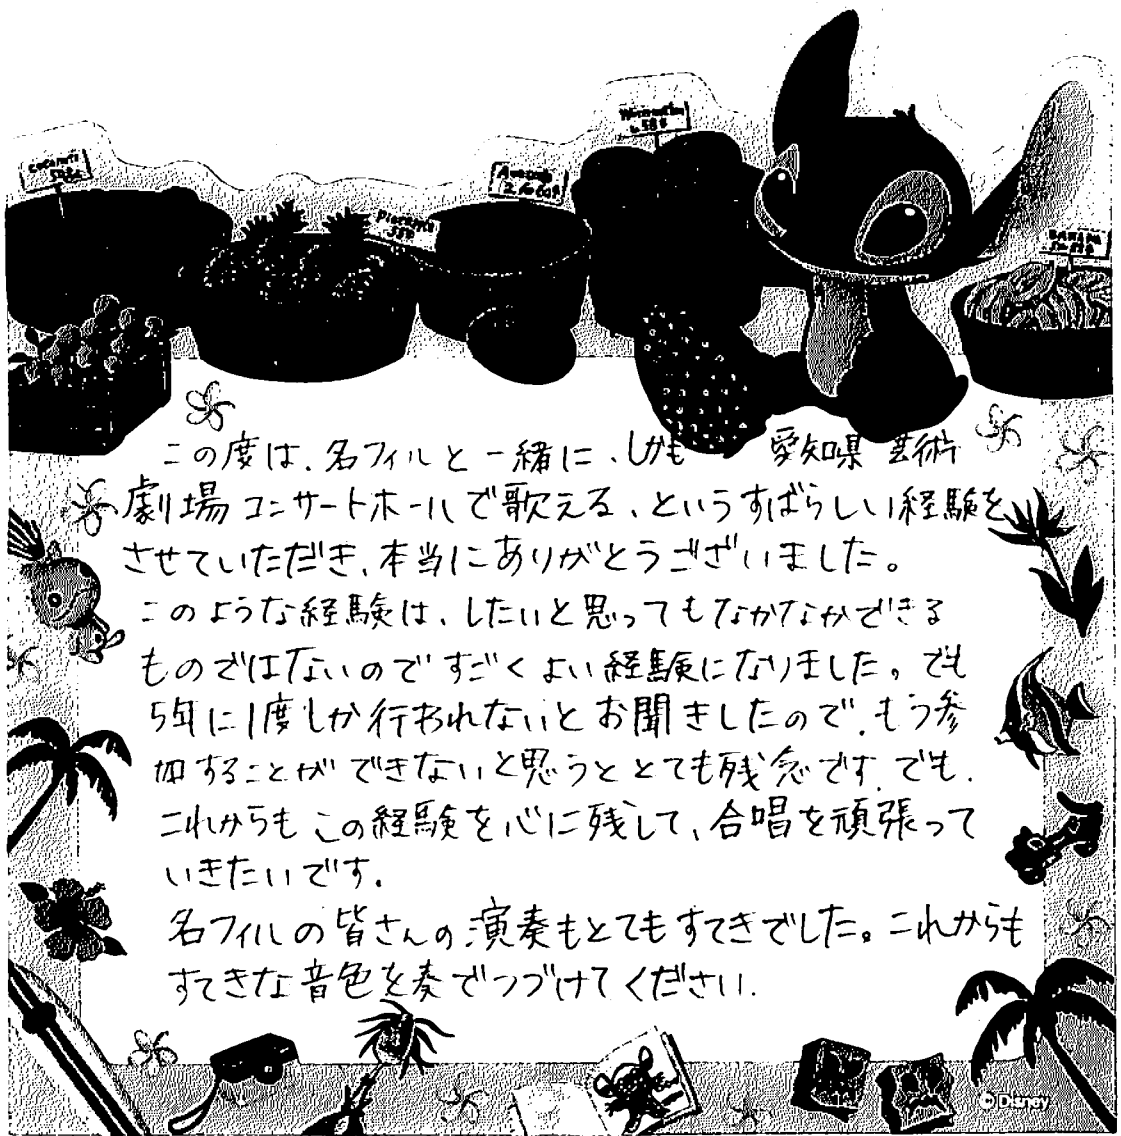 Avocado
この度は、名フィルと一緒に、しかも 愛知県 芸術
劇場コンサートホールで歌える、というすばらしい経験を
させていただき、本当にありがとうございました。
このような経験は、したいと思ってもなかなかできる
ものではないのですごくよい経験になりました。でも
5年に1度しか行われないとお聞きしたので、もう参
加することができないと思うととても残念です。でも、
これからもこの経験を心に残して、合唱を頑張って
いきたいです。
名フィルの皆さんの演奏もとてもすてきでした。これからも
すてきな音色を奏でつづけてください.
©Disney